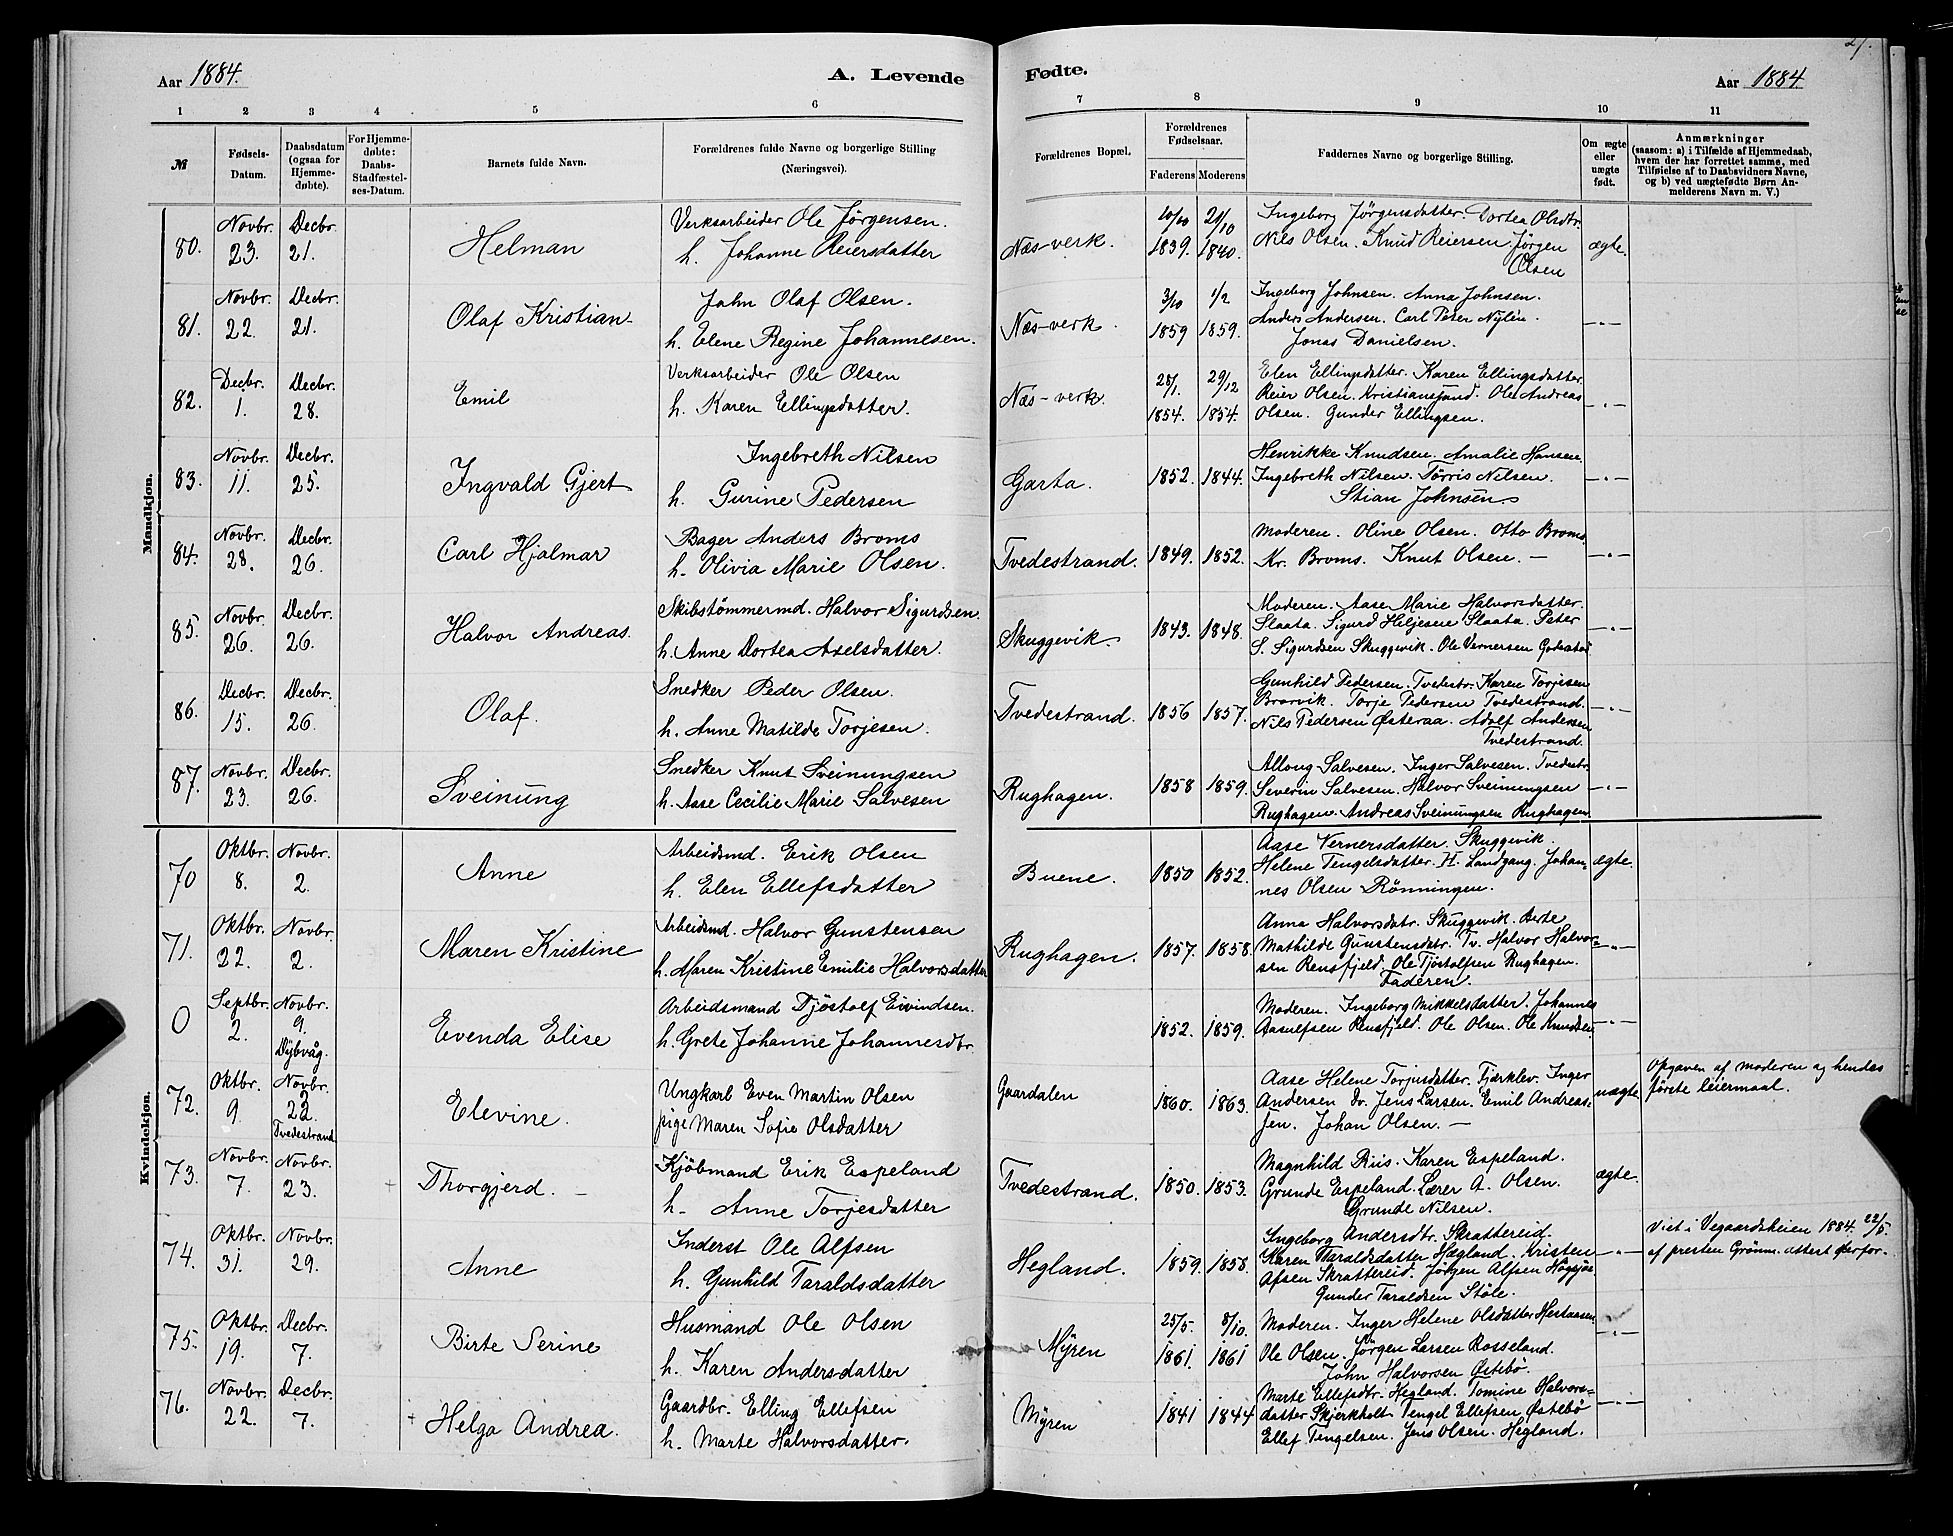 21.
Aar 1884.
A. Levende Fødte.
Aar 1884.
1 2 3 4 5 6 7 8 9 10 11
№
Fødsels-Datum.
Daabsdatum (ogsaa for Hjemmedøbte).
For Hjemmedøbte: Daabs-Stadfæstelses-Datum.
Barnets fulde Navn.
Forældrenes fulde Navne og borgerlige Stilling (Næringsvei).
Forældrenes Bopæl.
Forældrenes Fødselsaar.
Faderens Moderens
Faddernes Navne og borgerlige Stilling.
Om ægte eller uægte født.
Anmærkninger
(saasom: a) i Tilfælde af Hjemmedaab, hvem der har forrettet samme, med Tilføielse af to Daabsvidners Navne, og b) ved uægtefødte Børn Anmelderens Navn m. V.)
Mandkjøn.
80. Novbr. 23. Decbr. 21. Helman
Verksarbeider Ole Jørgensen.
h. Johanne Reiersdatter
Næs-verk. 10/10 1839. 21/10 1840.
Ingeborg Jörgensdatter. Dortea Olsdtr.
Nils Olsen. Knud Reiersen. Jörgen
Olsen
ægte.
81. Novbr. 22. Decbr. 21. Olaf Kristian
John Olaf Olsen.
h. Elene Regine Johannesen.
Næs-verk. 3/10 1859 1/2 1859.
Ingeborg Johnsen. Anna Johnsen.
Anders Andersen. Carl Peter Nylén.
Jonas Danielsen.
—"—
82. Decbr. 1. Decbr. 28. Emil
Verksarbeider Ole Olsen
h. Karen Ellingsdatter.
Næs-verk. 25/1. 1854. 29/12 1854.
Elen Ellingsdatter. Karen Ellingsdatter.
Reier Olsen. Kristiansund. Ole Andreas
Olsen. Gunder Ellingsen.
—"—
83. Novbr. 11. Decbr. 25. Ingvald Gjert
Ingebreth Nilsen
h. Gurine Pedersen
Garta. 1852. 1844.
Henrikke Knudsen. Amalie Hansen.
Ingebreth Nilsen. Törris Nilsen.
Stian Johnsen.
—"—
84. Novbr. 28. Decbr. 26. Carl Hjalmar
Bager Anders Broms
h. Olivia Marie Olsen.
Tvedestrand. 1849. 1852.
Moderen. Oline Olsen. Otto Broms
Kr. Broms. Knut Olsen. —
—"—
85. Novbr. 26. Decbr. 26. Halvor Andreas.
Skibstömmermd. Halvor Sigurdsen.
h. Anne Dortea Axelsdatter.
Skuggevik. 1843. 1848.
Moderen. Aase Marie Halvorsdatter.
Slaata. Sigurd Heljesen Slaata. Peter
S. Sigurdsen Skuggevik. Ole Vernersen
—"—
86. Decbr. 15. Decbr. 26. Olaf.
Snedker Peder Olsen.
h. Anne Matilde Torjesen.
Tvedestrand. 1856 1857.
Gunhild Pedersen. Tvedestr. Karen Torjesen
Torje Pedersen Tvedestrand.
Nils Pedersen Østeraa. Adolf Andersen
Tvedestrand.
—"—
87. Novbr. 23. Decbr. 26. Sveinung
Snedker Knut Sveinungsen
h. Aase Cecilie Marie Salvesen
Rughagen. 1858 1859.
Salvesen. Inger Salvesen. Tvedestr.
Severin Salvesen. Halvor Sveinungsen
Rughagen. Andreas Sveinungsen Rughagen.
—"—
Kvindekjøn.
70 Oktbr. 8. Novbr. 2. Anne
Arbeidsmd. Erik Olsen
h. Elen Ellefsdatter
Buene. 1850 1852.
Aase Vernersdatter. Skuggevik.
Helene Tengelsdatter. H. Landgang. Johan-
nes Olsen Rönningen.
ægte.
71. Oktbr. 22. Novbr. 2. Maren Kristine
Arbeidsmd. Halvor Gunstensen
h. Maren Kristine Emilie Halvorsdatter
Rughagen. 1857. 1858.
Anna Halvorsdatr. Skuggevik. Berte
Mathilde Gunstensdatr. Tv. Halvor Halvor-
sen Rensfjeld. Ole Tjöstolfsen Rughagen.
Faderen.
—"—
0 Septbr. 2. Novbr. 9. Dybvåg. Evenda Elise
Arbeidsmand Tjöstolf Eivindsen.
h. Grete Johanne Johannesdtr.
1852. 1859.
Moderen. Ingeborg Mikkelsdatter. Johannes
Aanulfsen Rensfjeld. Ole Olsen. Ole Knudsen.
—"—
72. Oktbr. 9. Novbr. 22. Tvedestrand Elevine.
Ungkarl Even Martin Olsen
pige Maren Sofie Olsdatter
Gaardalen 1860. 1863.
Aase Helene Torjusdatter. Fjærklev. Inger
Andersen do. Jens Larsen. Emil Andreas-
sen. Johan Olsen. —
uægte.
Opgaven af moderen og hendes
förste leiermaal.
73. Novbr. 7. Novbr. 23. Thorgjerd. —
Kjöbmand Erik Espeland
h. Anne Torjesdatter
Tvedestrand. 1850. 1853.
Magnhild Riis. Karen Espeland.
Grunde Espeland. Lærer A. Olsen.
Grunde Nilsen.
ægte.
74. Oktbr. 31. Novbr. 29. Anne
Inderst Ole Alfsen
h. Gunhild Taraldsdatter
Hegland. 1859. 1858.
Ingeborg Andersdtr. Skrattereid.
Karen Taraldsdatter Hægland. Kristen
Alfsen Skrattereid. Jörgen Alfsen
Gunder Taraldsen Stöle.
—"—
Viet i Vegaardsheien 1884. 22/5.
af presten Grönn. attert derfor.
75. Oktbr. 19. Decbr. 7. Birte Serine
Husmand Ole Olsen
h. Karen Andersdatter
Myren 25/5. 1861. 8/10. 1861
Moderen. Inger Helene Olsdatter
Ole Olsen. Jörgen Larsen Rosseland.
John Halvorsen Østebö.
—"—
76. Novbr. 22. Decbr. 7. Helga Andrea.
Gaardbr. Elling Ellefsen
h. Marte Halvorsdatter.
Myren 1841 1844
Marte Ellefsdtr. Hegland. Tomine Halvors-
datter Skjerkholt. Tengel Ellefsen Østebö
Ellef Tengelsen. Jens Olsen. Hegland.
—"—